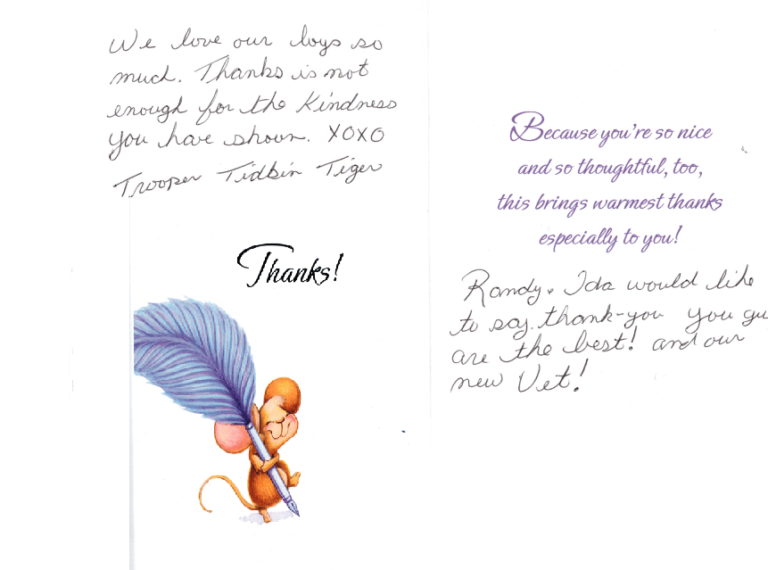 We love our boys so
much. Thanks is not
enough for the Kindness
you have shown. XOXO
Trooper Tidbin Tiger
Thanks!
Because you're so nice
and so thoughtful, too,
this brings warmest thanks
especially to you!
Randy + Ida would like
to say thank-you you gu
are the best! and our
new Vet!